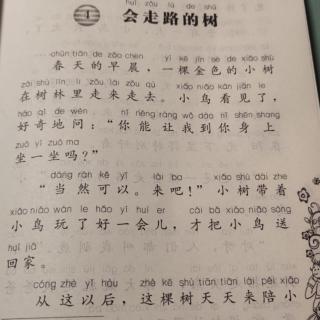 huì zǒu lù de shù
4 会走路的树
chūn tiān de zǎo chen yì kē jīn sè de xiǎo shù
春天的早晨，一棵金色的小树
zài shù lín lǐ zǒu lái zǒu qù xiǎo niǎo kàn jiàn le
在树林里走来走去。小鸟看见了，
hào qí de wèn nǐ néng ràng wǒ dào nǐ shēn shang
好奇地问：“你能让我到你身上
zuò yí zuò ma
坐一坐吗？”
dāng rán kě yǐ lái ba xiǎo shù dài
“当然可以。来吧！”小树带着
xiǎo niǎo wán le hǎo yí huì er cái bǎ xiǎo niǎo sòng
小鸟玩了好一会儿，才把小鸟送
huí jiā
回家。
cóng zhè yǐ hòu zhè kē shù tiān tiān lái péi xiǎo
从这以后，这棵树天天来陪小